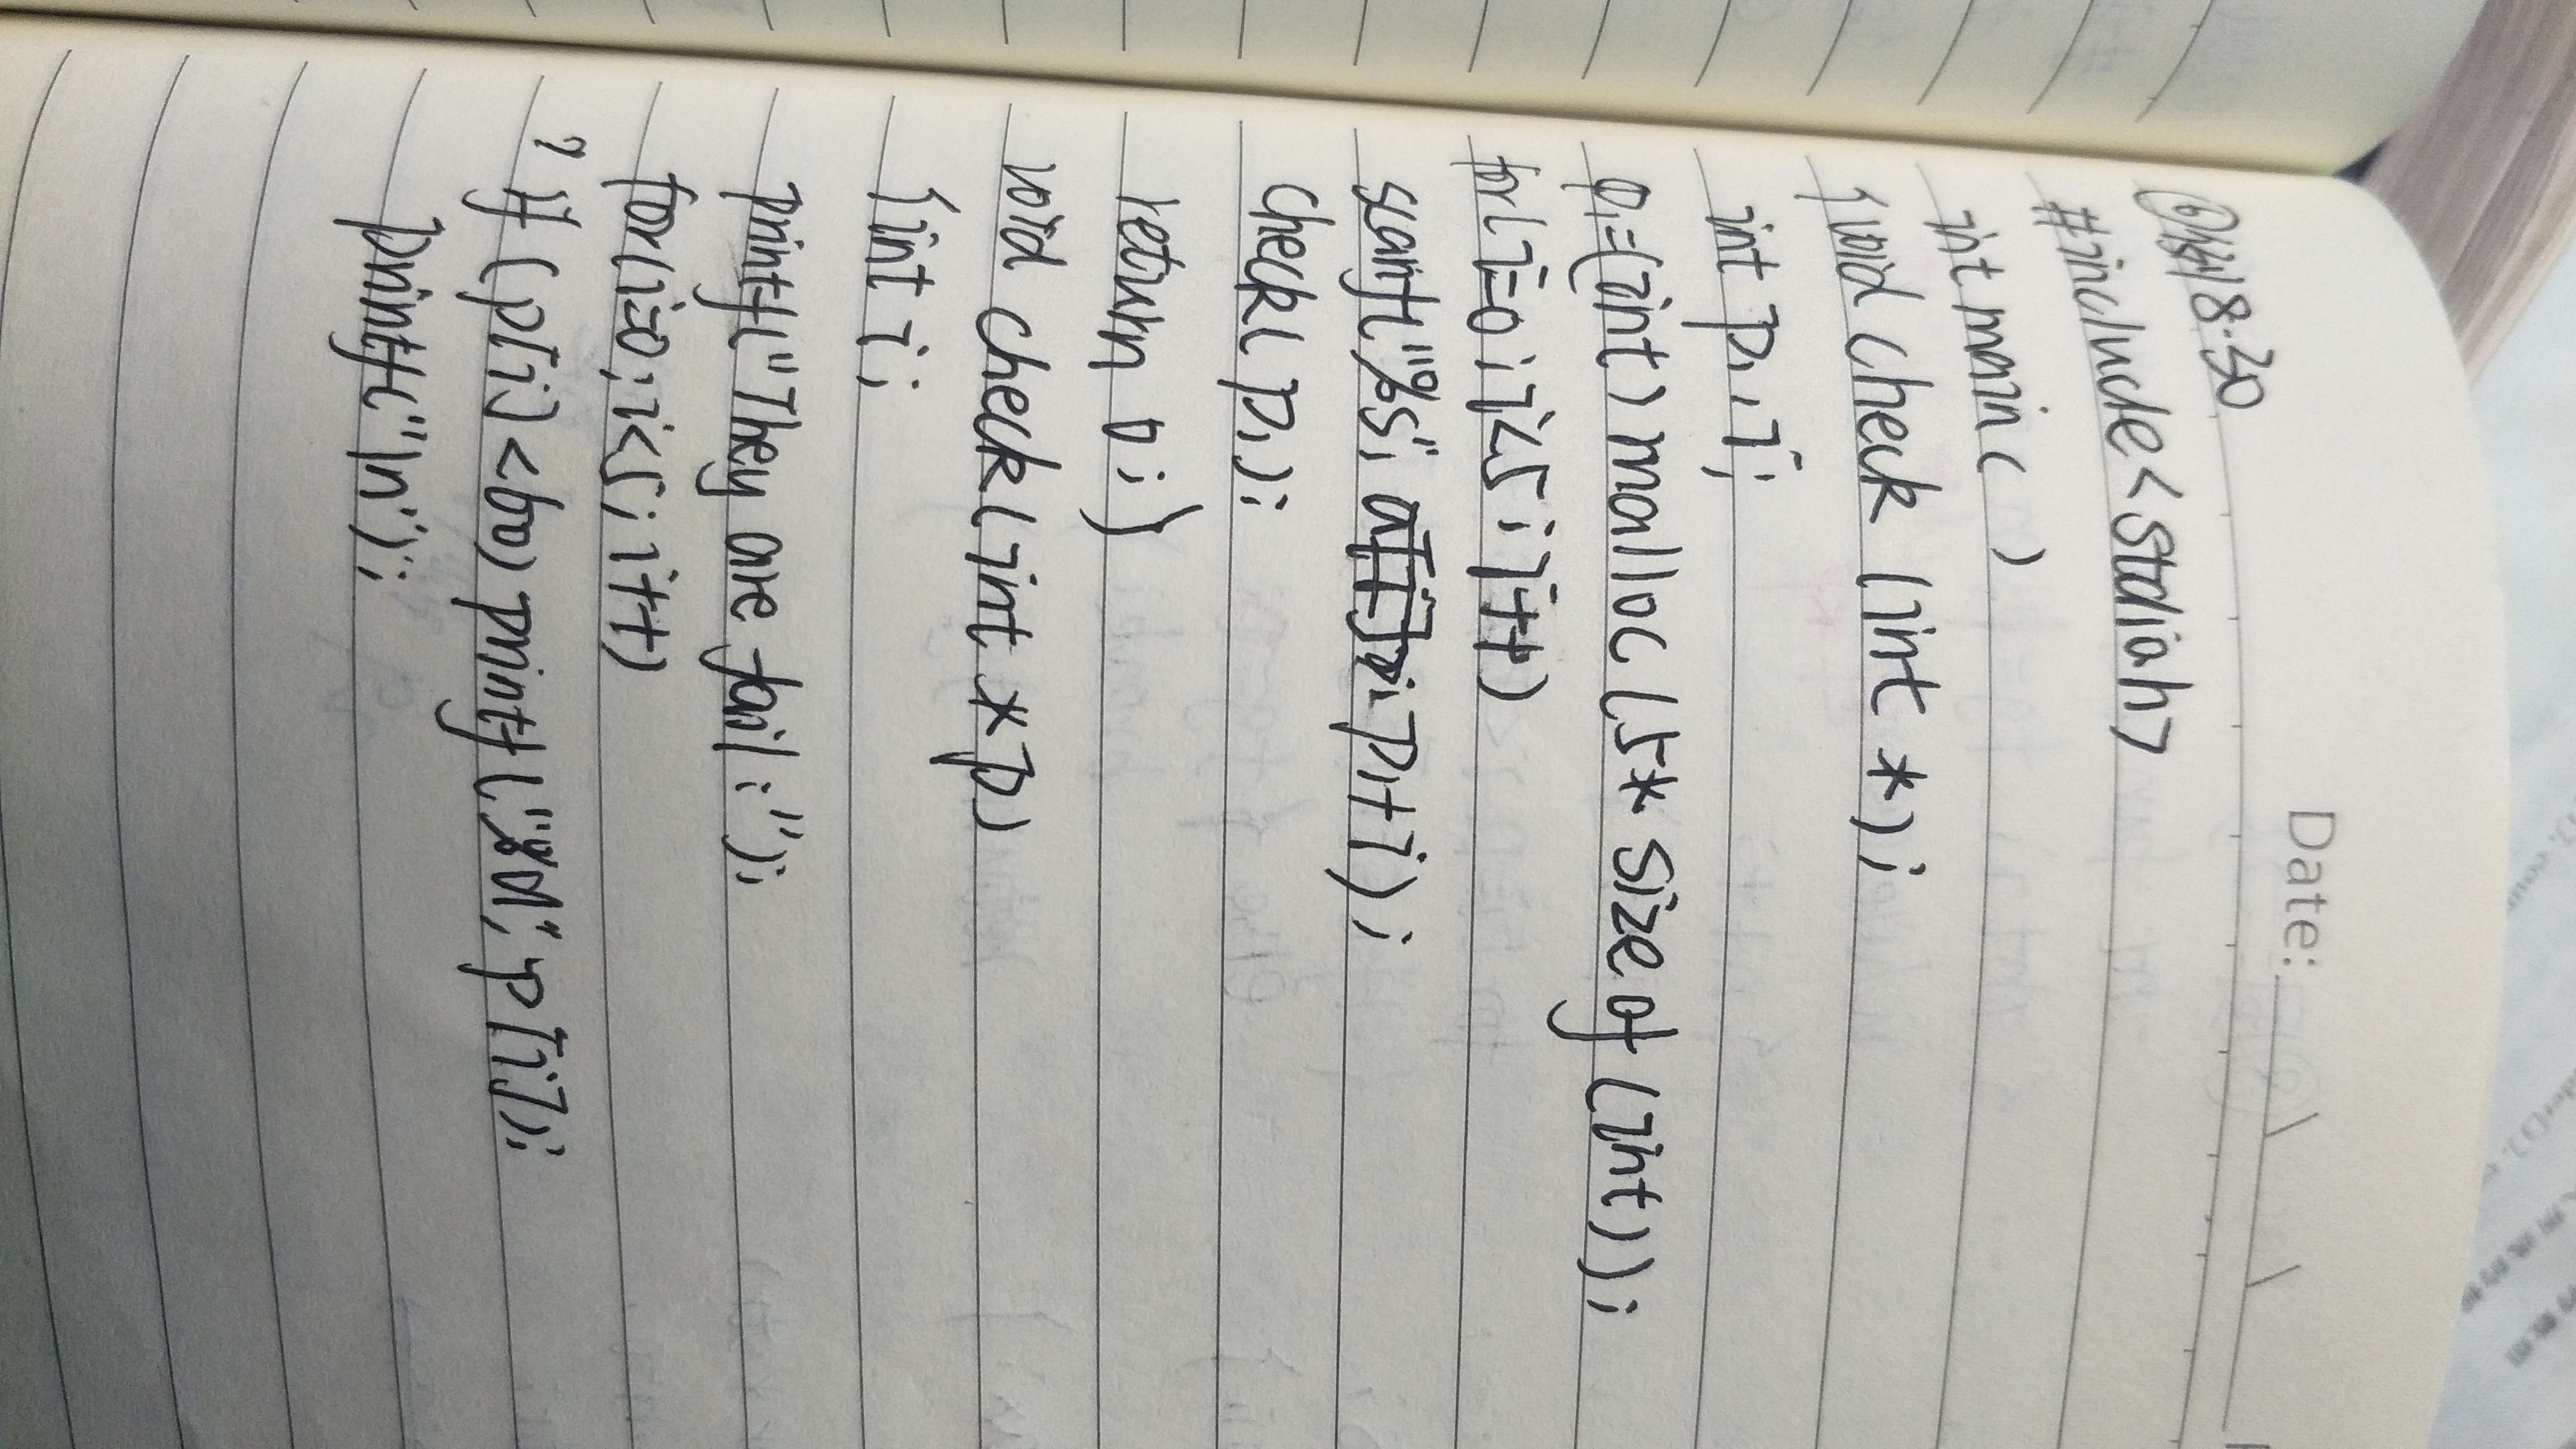 Date:
⑥例8.30
#include<stdioh>
int main( )
{void check (int *);
int p1,i;
p1=(int) malloc (5* size of (int));
for(i=0;i<5;i++)
scanf("%s", p1+i);
check( p1);
return 0;}
void check(int *p)
{int i;
printf("They are fail:");
for(i=0;i<5;i++)
? if (p[i]<60) printf("%d", p[i]);
printf("\n");